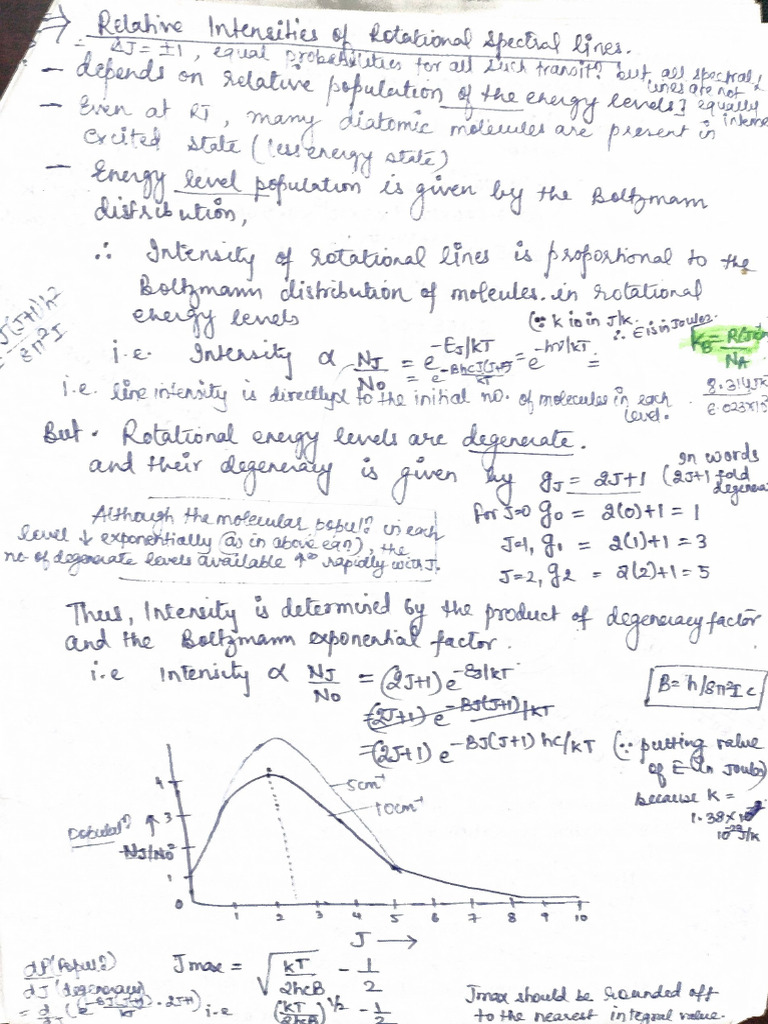 ⇒ Relative Intensities of Rotational Spectral lines.
ΔJ = ±1, equal probabilities for all such transitn but all spectral lines are not equally intense
– depends on relative population of the energy levels]
– Even at RT, many diatomic molecules are present in
excited state (less energy state)
– Energy level population is given by the Boltzmann
distribution,
∴ Intensity of rotational lines is proportional to the
Boltzmann distribution of molecules in rotational
energy levels
(∵ K is in J/K. ∴ E is in Joules.
J(J+1)h²
8π²I
i.e. Intensity ∝ NJ/N0 = e^-EJ/KT = e^-hν/KT =
= e^-BhcJ(J+1)/KT
KB = R
NA
8.314JK
6.023x
i.e. line intensity is directly ∝ to the initial no. of molecules in each level.
But. Rotational energy levels are degenerate.
and their degeneracy is given by gJ = 2J+1
In words (2J+1 fold
for J=0 g0 = 2(0)+1 = 1
J=1, g1 = 2(1)+1 = 3
J=2, g2 = 2(2)+1 = 5
Although the molecular populn in each
level ↓ exponentially (as in above eqn), the
no. of degenerate levels available ↑es rapidly with J.
Thus, Intensity is determined by the product of degeneracy factor
and the Boltzmann exponential factor.
i.e Intensity ∝ NJ/N0 = (2J+1) e^-EJ/KT
B = h/8π²Ic
= (2J+1) e^-BJ(J+1)/KT
= (2J+1) e^-BJ(J+1) hc/KT
(∵ putting value
of E in Joules)
because K =
1.38 x
10^-23 J/K
5cm⁻¹
10cm⁻¹
Populatn ↑
NJ/N0
4
3
1
0
1 2 3 4 5 6 7 8 9 10
J →
Jmax = √(KT/2hcB) - 1/2
i.e (KT/2hcB)^1/2 - 1/2
dP (Populn)
dJ (degeneracy)
Jmax should be rounded off
to the nearest integral value.